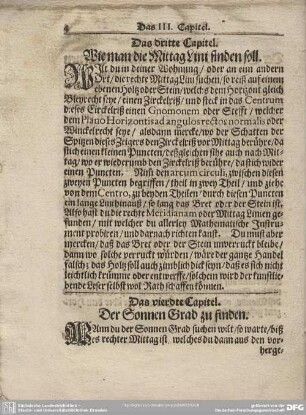 Das III. Capitel.
Das dritte Capitel.
Wie man die Mittag Lini finden soll.
WIlt du in deiner Wohnung/ oder an ein andern
Ort/ die rechte Mittag Lini suchen/ so reiß auf einem
ebenen Holz oder Stein/ welchs dem Horizont gleich
Bleyrecht seye/ einen Zirckelriß/ und steck in das Centrum
dieses Circkelriß einen Gnomonem oder Stefft/ welcher
dem Plano Horizontis ad angulos rectos normalis oder
Winckelrecht seye/ alsdann mercke/ wo der Schatten der
Spitzen dieses Zeigers den Zirckelriß vor Mittag berühre/ da
stich einen kleinen Puncten/ deßgleichen sihe auch nach Mit-
tag/ wo er wiederumb den Zirckelriß berühre/ da stich wider
einen Puncten. Nun den arcum circuli, zwischen diesen
zweyen Puncten begriffen/ theil in zwey Theil/ und ziehe
von dem Centro, zu beyden Theilen/ durch diesen Puncten
ein lange Lini hinauß/ so lang das Bret oder der Stein ist.
Also hast du die recht Meridianam oder Mittag Linien ge-
funden/ mit welcher du allerley Mathematische Instru-
ment probiren/ und darnach richten kanst. Du must aber
mercken/ daß das Bret oder der Stein unverruckt bleibe/
dann wo solche verruckt würden/ wäre der gantze Handel
falsch; das Holz soll auch zimlich dick seyn/ daß es sich nicht
leichtlich krümme oder entwerffe/ solchem wird der kunstlie-
bende Leser selbst wol Rath schaffen können.
Das vierdte Capitel.
Der Sonnen Grad zu finden.
WAnn du der Sonnen Grad suchen wilt/ so warte/ biß
es rechter Mittag ist. welches du dann aus den vor-
herge-